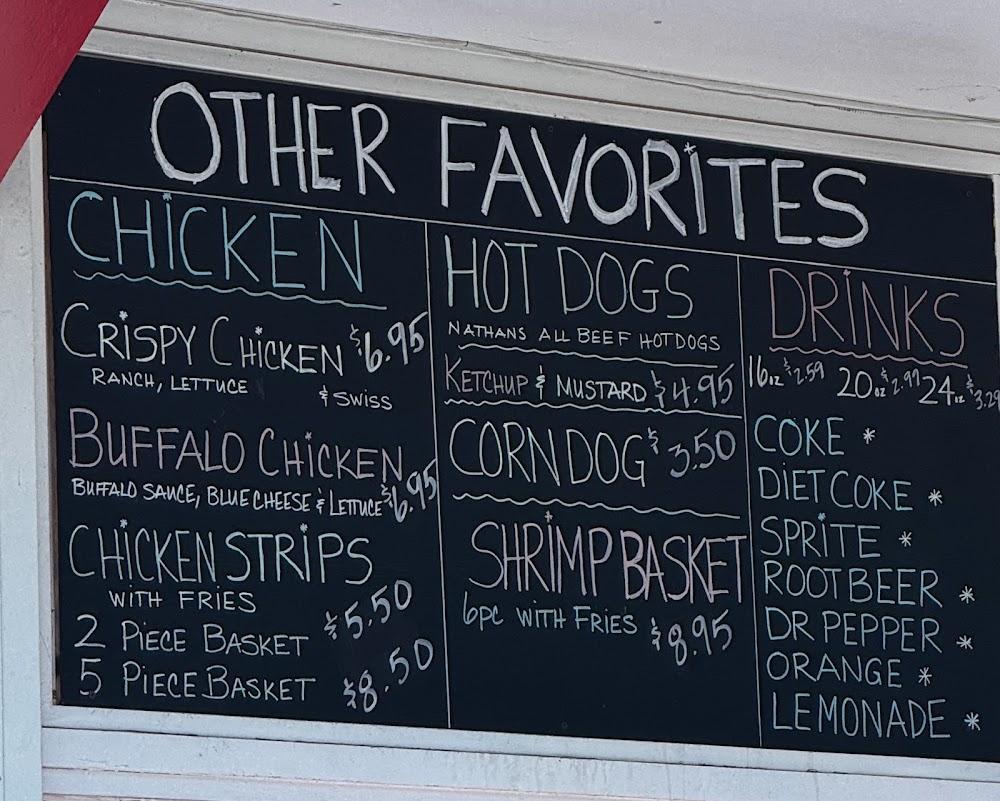 OTHER FAVORITES
CHICKEN
CRISPY CHICKEN $6.95
RANCH, LETTUCE & SWISS
BUFFALO CHICKEN
BUFFALO SAUCE, BLUE CHEESE & LETTUCE $6.95
CHICKEN STRIPS
WITH FRIES
2 PIECE BASKET $5.50
5 PIECE BASKET $8.50
HOT DOGS
NATHANS ALL BEEF HOTDOGS
KETCHUP & MUSTARD $4.95
CORN DOG $3.50
SHRIMP BASKET
6PC WITH FRIES $8.95
DRINKS
16oz $2.59 20oz $2.99 24oz $3.29
COKE *
DIET COKE *
SPRITE *
ROOTBEER *
DR PEPPER *
ORANGE *
LEMONADE *